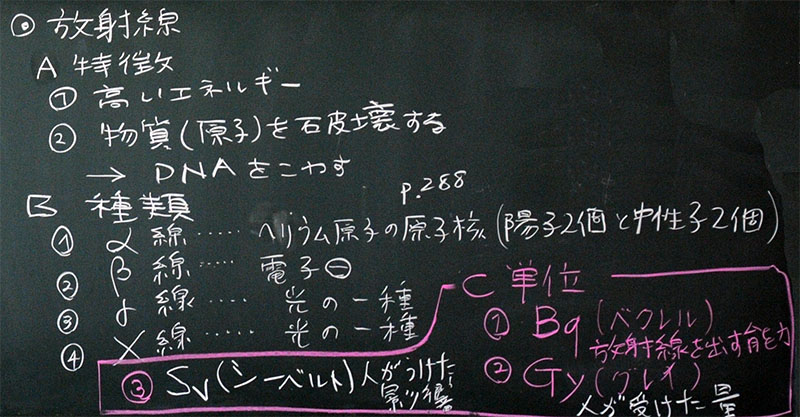 ⦿ 放射線
A 特徴
① 高いエネルギー
② 物質(原子)を石皮壊する
→ DNAをこわす
p.288
B 種類
① α線…… ヘリウム原子の原子核(陽子2個と中性子2個)
② β線…… 電子⊖
③ γ線…… 光の一種
④ X線…… 光の一種
C 単位
① Bq(ベクレル)
放射線を出す能力
② Gy(グレイ)
人が受けた量
③ Sv(シーベルト)人がうけた
影響